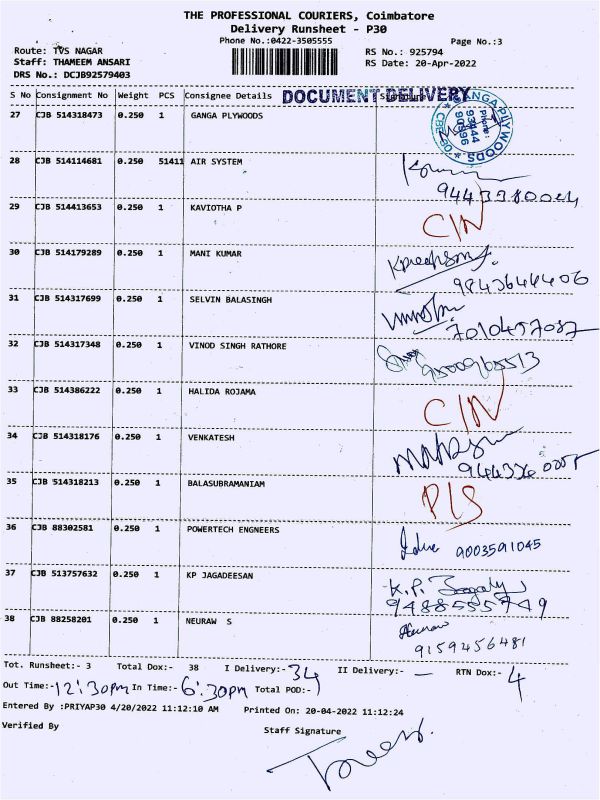 THE PROFESSIONAL COURIERS, Coimbatore
Delivery Runsheet - P30
Phone No.:0422-3505555
Page No.:3
Route: TVS NAGAR
RS No.: 925794
Staff: THAMEEM ANSARI
RS Date: 20-Apr-2022
DRS No.: DCJB92579403
S No Consignment No Weight PCS Consignee Details Signature
DOCUMENT DELIVERY
27 CJB 514318473 0.250 1 GANGA PLYWOODS
GANGA PLYWOODS
Phone:
28 CJB 514114681 0.250 51411 AIR SYSTEM
29 CJB 514413653 0.250 1 KAVIOTHA P C/N
30 CJB 514179289 0.250 1 MANI KUMAR
31 CJB 514317699 0.250 1 SELVIN BALASINGH
7010457087
32 CJB 514317348 0.250 1 VINOD SINGH RATHORE
33 CJB 514386222 0.250 1 HALIDA ROJAMA C/N
34 CJB 514318176 0.250 1 VENKATESH
35 CJB 514318213 0.250 1 BALASUBRAMANIAM P/S
36 CJB 88302581 0.250 1 POWERTECH ENGNEERS 9003591045
37 CJB 513757632 0.250 1 KP JAGADEESAN K.P.
9488555749
38 CJB 88258201 0.250 1 NEURAW S
9159456481
Tot. Runsheet:- 3 Total Dox:- 38 I Delivery:- 34 II Delivery:- — RTN Dox:- 4
Out Time:- 12:30pm In Time:- 6:30pm Total POD:-
Entered By :PRIYAP30 4/20/2022 11:12:10 AM Printed On: 20-04-2022 11:12:24
Verified By
Staff Signature